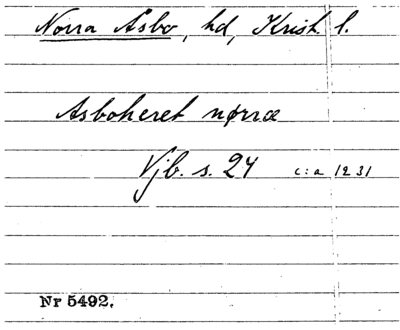 Norra Åsbo, hd, Krist. l.
Asboheret nørræ
Vjb. s. 24 c:a 1231
Nr 5492.